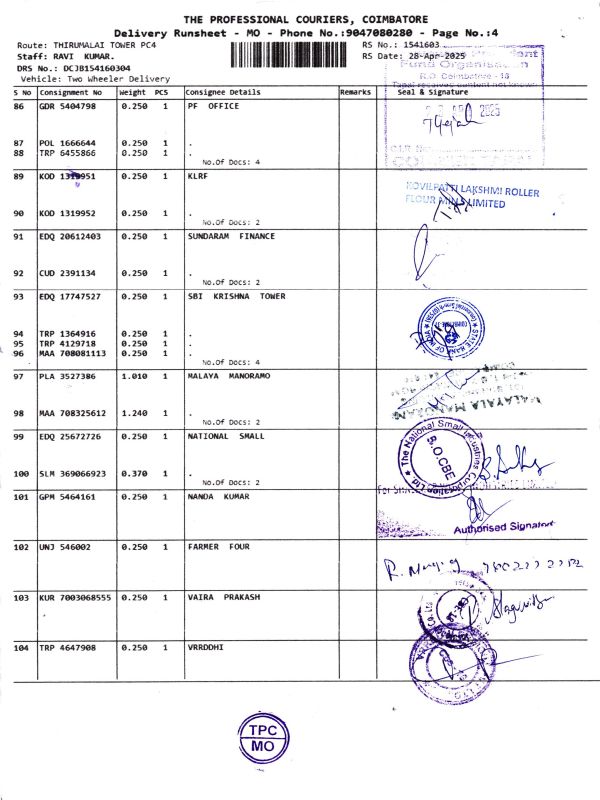 THE PROFESSIONAL COURIERS, COIMBATORE
Delivery Runsheet - MO - Phone No.:9047080280 - Page No.:4
Route: THIRUMALAI TOWER PC4
RS No.: 1541603
Staff: RAVI KUMAR.
RS Date: 28-Apr-2025
DRS No.: DCJB154160304
Vehicle: Two Wheeler Delivery
R.O. Coimbatore - 18
S No Consignment No Weight PCS Consignee Details Remarks Seal & Signature
86 GDR 5404798 0.250 1 PF OFFICE
87 POL 1666644 0.250 1 .
88 TRP 6455866 0.250 1 .
No.Of Docs: 4
89 KOD 1319951 0.250 1 KLRF
KOVILPATTI LAKSHMI ROLLER
FLOUR MILLS LIMITED
90 KOD 1319952 0.250 1 .
No.Of Docs: 2
91 EDQ 20612403 0.250 1 SUNDARAM FINANCE
92 CUD 2391134 0.250 1 .
No.Of Docs: 2
93 EDQ 17747527 0.250 1 SBI KRISHNA TOWER
STATE BANK OF INDIA
94 TRP 1364916 0.250 1 .
95 TRP 4129718 0.250 1 .
96 MAA 708081113 0.250 1 .
No.Of Docs: 4
97 PLA 3527386 1.010 1 MALAYA MANORAMO
MALAYALA MANORAMA
98 MAA 708325612 1.240 1 .
No.Of Docs: 2
99 EDQ 25672726 0.250 1 NATIONAL SMALL
The National Small Industries Corporation Ltd
B.O.CBE
100 SLM 369066923 0.370 1 .
No.Of Docs: 2
101 GPM 5464161 0.250 1 NANDA KUMAR
Authorised Signatory
102 UNJ 546002 0.250 1 FARMER FOUR
103 KUR 7003068555 0.250 1 VAIRA PRAKASH
104 TRP 4647908 0.250 1 VRRDDHI
TPC
MO